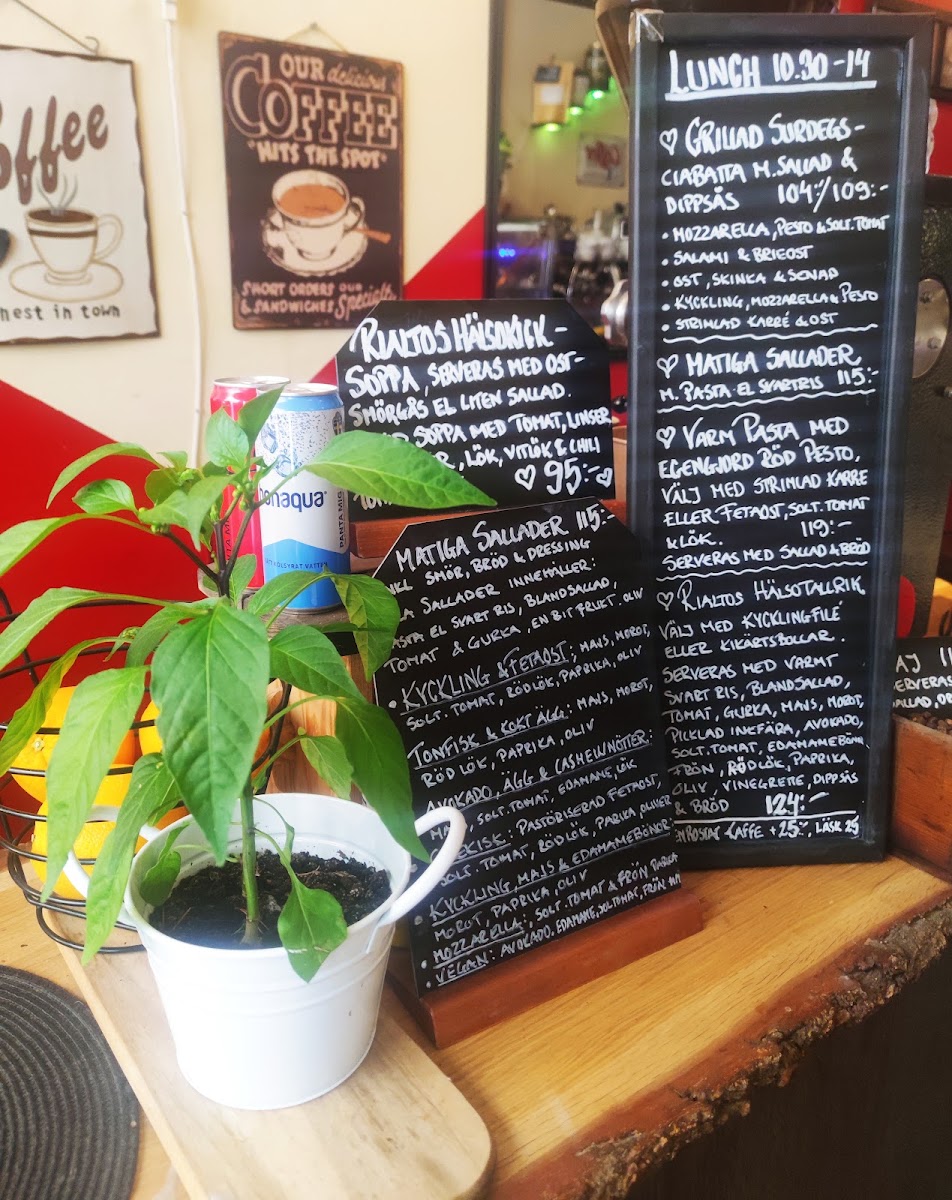 offee
nest in town
OUR delicious
COFFEE
"HITS THE SPOT"
SHORT ORDERS OUR
& SANDWICHES Specialty
RIALTOS HÄLSOKICK -
SOPPA, SERVERAS MED OST-
SMÖRGÅS EL LITEN SALLAD.
SOPPA MED TOMAT, LINSER
, LÖK, VITLÖK & CHILI
♡ 95:- ♡
onaqua
PANTA
KOLSYRAT VATTEN
MATIGA SALLADER 115:-
SMÖR, BRÖD & DRESSING
SALLADER INNEHÅLLER:
PASTA EL SVART RIS, BLANDSALLAD,
TOMAT & GURKA, EN BIT FRUKT. OLIV
• KYCKLING & FETAOST: MAIS, MOROT,
SOLT. TOMAT, RÖDLÖK, PAPRIKA, OLIV
TONFISK & KOKT ÄGG: MAIS, MOROT,
RÖD LÖK, PAPRIKA, OLIV
AVOKADO, ÄGG & CASHEWNÖTTER:
SOLT. TOMAT, EDAMAME, LÖK
: PASTÖRISERAD FETAOST,
SOLT. TOMAT, RÖDLÖK, PARIKA, OLIVER
• KYCKLING, MAJS & EDAMAMEBÖNOR:
MOROT, PAPRIKA, OLIV
MOZZARELLA: SOLT. TOMAT & FRÖN PAPRIKA
• VEGAN: AVOKADO, EDAMAME, SOLTOMAT, FRÖN
LUNCH 10.30-14
♡ GRILLAD SURDEGS-
CIABATTA M. SALLAD &
DIPPSÅS 104:-/109:-
• MOZZARELLA, PESTO & SOLT. TOMAT
• SALAMI & BRIEOST
• OST, SKINKA & SENAP
• KYCKLING, MOZZARELLA & PESTO
• STRIMLAD KARRÉ & OST
♡ MATIGA SALLADER
M. PASTA EL SVARTRIS 115:-
♡ VARM PASTA MED
EGENGJORD RÖD PESTO,
VÄLJ MED STRIMLAD KARRE
ELLER FETAOST, SOLT. TOMAT
& LÖK. 119:-
SERVERAS MED SALLAD & BRÖD
♡ RIALTOS HÄLSOTALLRIK
VÄLJ MED KYCKLINGFILÉ
ELLER KIKÄRTSBOLLAR.
SERVERAS MED VARMT
SVART RIS, BLANDSALLAD,
TOMAT, GURKA, MAIS, MOROT,
PICKLAD INGEFÄRA, AVOKADO,
SOLT. TOMAT, EDAMAMEBÖNOR
FRÖN, RÖDLÖK, PAPRIKA,
OLIV, VINEGRETTE, DIPPSÅS
& BRÖD 124:-
KAFFE +25:-, LÄSK 25
SERVERAS